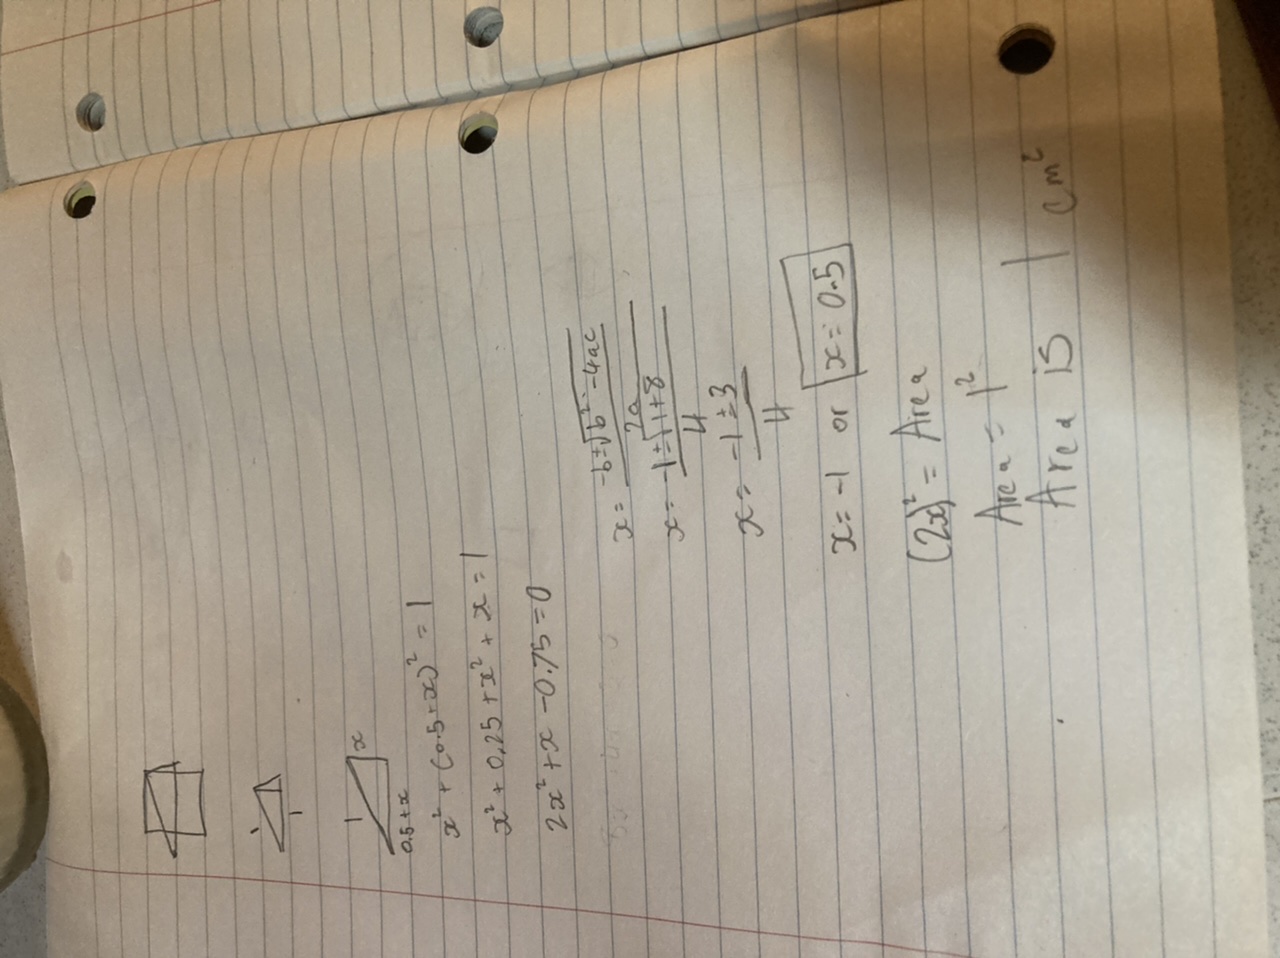 1
1
1
x
0.5+x
x² + (0.5+x)² = 1
x² + 0.25 + x² + x = 1
2x² + x - 0.75 = 0
x = -b±√b²-4ac
2a
x = -1±√1+8
4
x = -1±3
4
x = -1 or x = 0.5
(2x)² = Area
Area = 1²
Area is 1 cm²